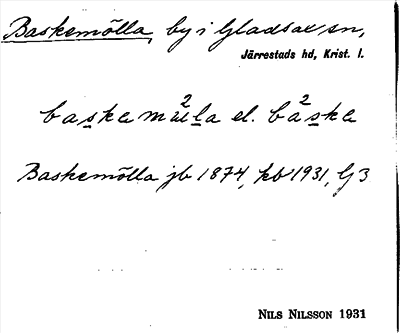 Baskemölla, by i Gladsax sn,
Järrestads hd, Krist. l.
baskamu²la el. bá²ska
Baskemölla jb 1874, kb 1931, G 3
NILS NILSSON 1931